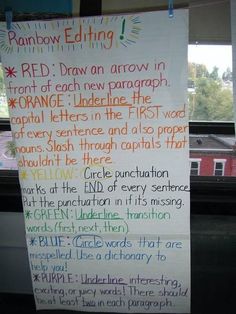 Rainbow Editing!
* RED: Draw an arrow in
front of each new paragraph.
* ORANGE: Underline the
capital letters in the FIRST word
of every sentence and also proper
nouns. Slash through capitals that
shouldn't be there.
* YELLOW: Circle punctuation
marks at the END of every sentence.
Put the punctuation in if it's missing.
* GREEN: Underline transition
words (first, next, then)
* BLUE: Circle words that are
misspelled. Use a dictionary to
help you!
* PURPLE: Underline interesting,
exciting, or juicy words! There should
be at least two in each paragraph.